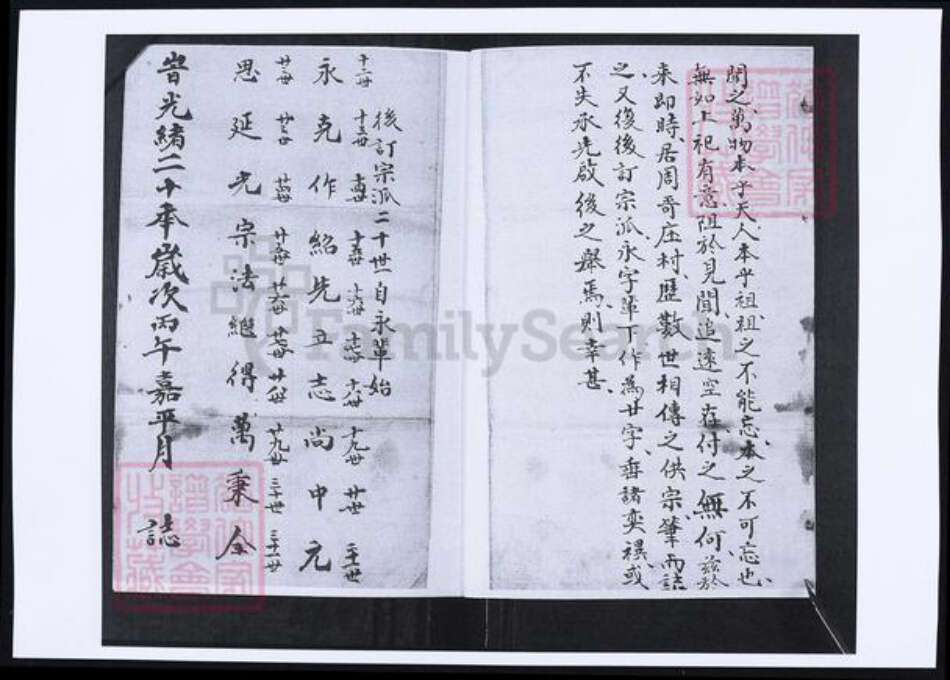 聞之萬物本乎天人本乎祖祖之不能忘本之不可忘也
無如上祀有意阻於見聞追遠空存付之無何茲於
來即時居周奇庄村歷數世相傳之供宗筆而誌
之又復後訂宗派永字軰下作為廿字垂諸奕禩或
不失承先啟後之舉焉則幸甚
後訂宗派二十世自永軰始
十二世 十三世 十四世 十五世 十六世 十七世 十八世 十九世 廿世 二十一世
永克作紹先立志尚中元
廿二世 廿三世 廿四世 廿五世 廿六世 廿七世 廿八世 廿九世 三十世 三十一世
思延光宗法繼得萬秉全
光緒二十本歲次丙午嘉平月 誌
FamilySearch